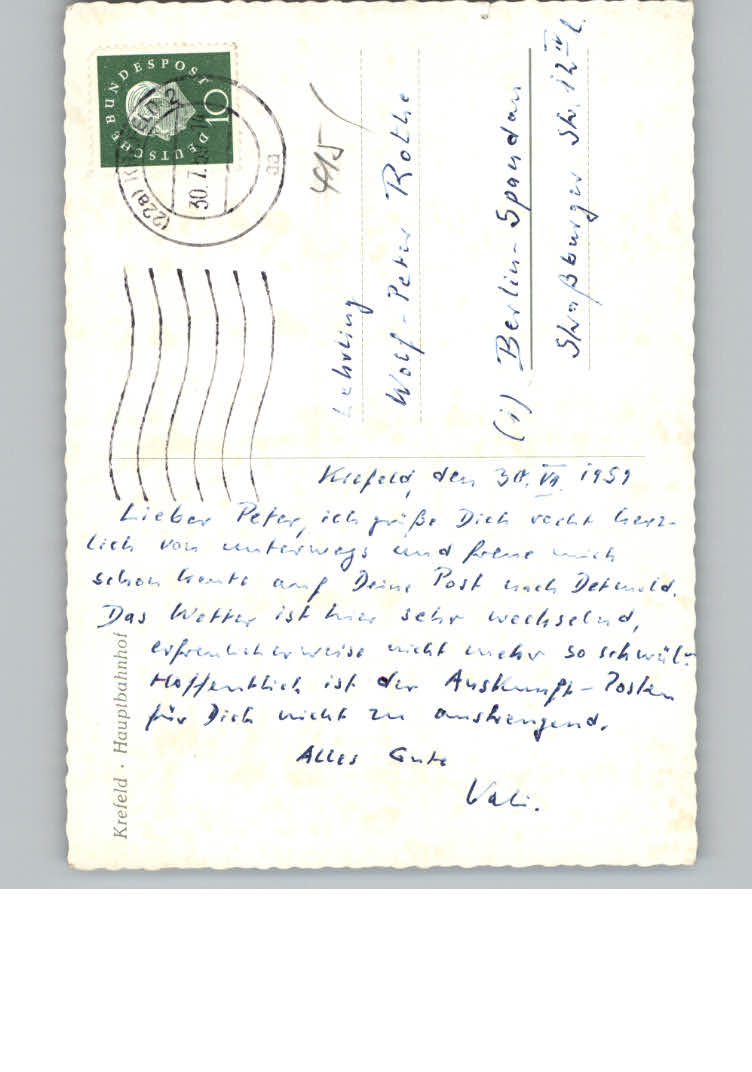 DEUTSCHE BUNDESPOST
10
(22a) KREFELD
30.7.59
aa
415
Lehrling
Wolf-Peter Rothe
(1) Berlin-Spandau
Straßburger Str. 12 IV l.
Krefeld, den 30. VII. 1959
Lieber Peter, ich grüße Dich recht herz-
lich von unterwegs und freue mich
schon heute auf Deine Post nach Detmold.
Das Wetter ist hier sehr wechselnd,
erfreulicherweise nicht mehr so schwül.
Hoffentlich ist der Auskunft-Posten
für Dich nicht zu anstrengend.
Alles Gute
Vati.
Krefeld · Hauptbahnhof